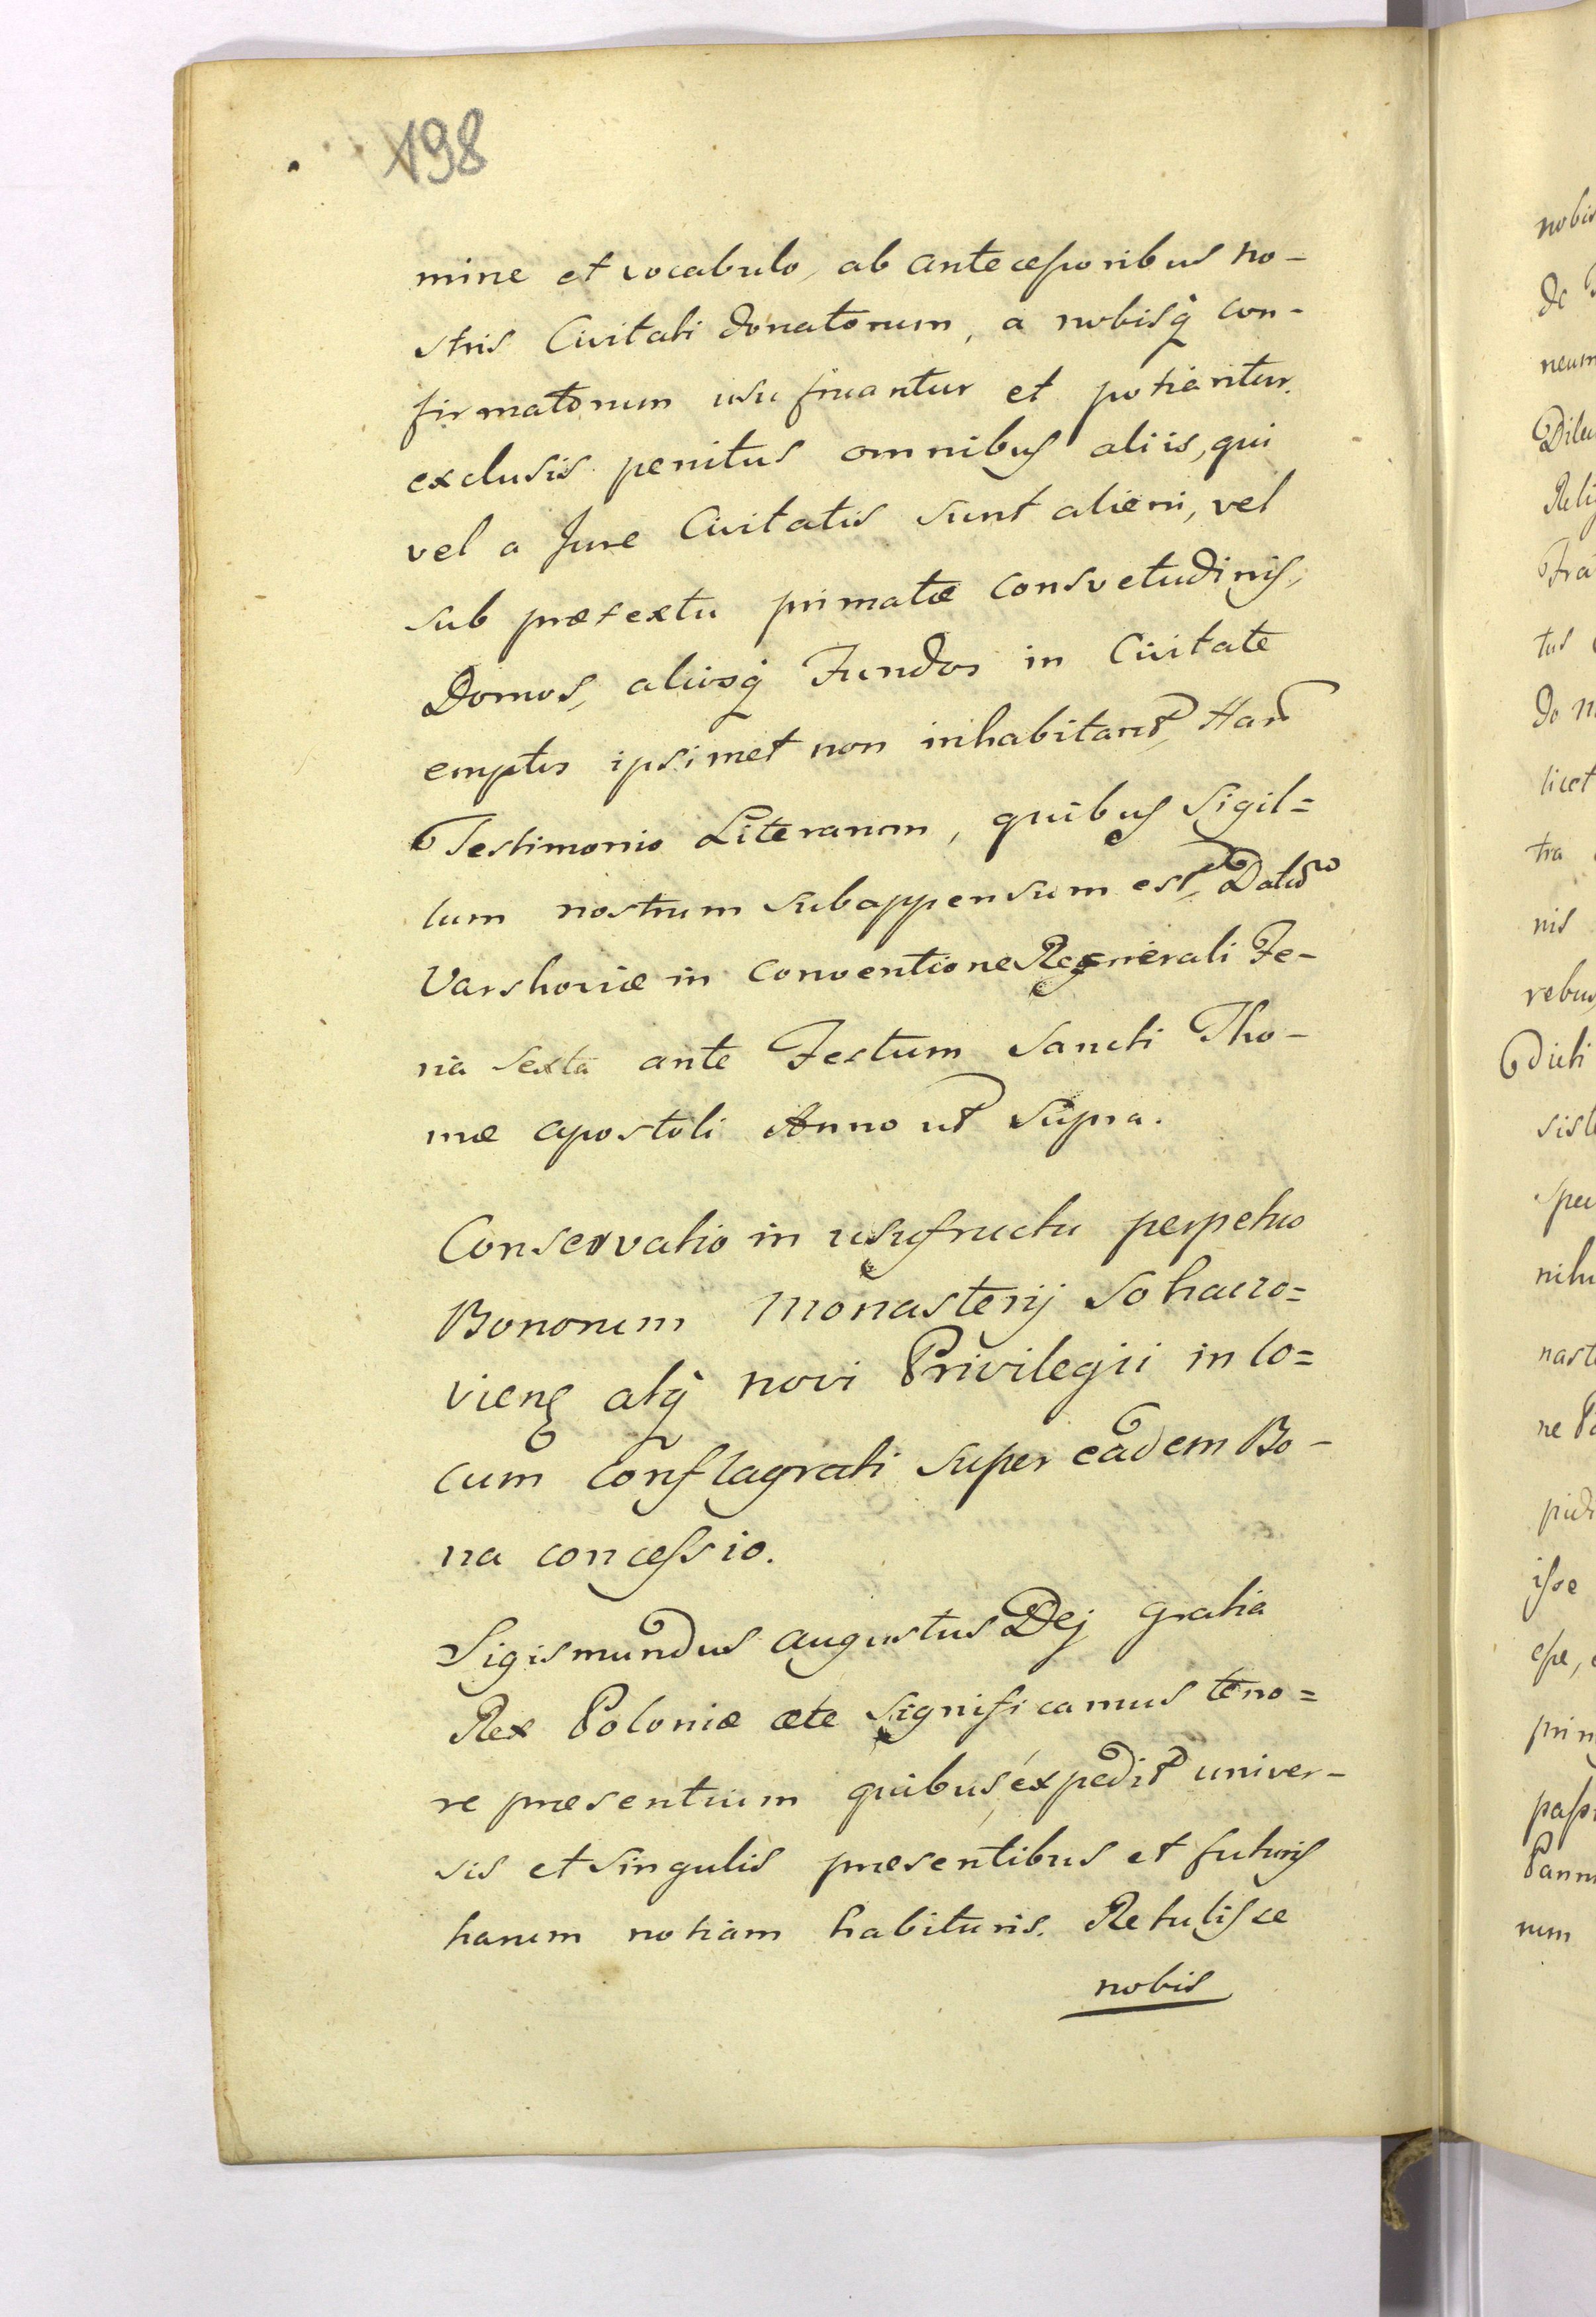 198
mine et vocabulo, ab antecessoribus no-
stris Civitati donatorum, a nobisq́ con-
firmatorum usu fruantur et potiantur.
exclusis penitus omnibus aliis, qui
vel a Jure Civitatis sunt alieni, vel
sub prætextu primatæ consvetudinis,
Domos, aliosq́ Fundos in Civitate
emptos ipsimet non inhabitant, Har
Testimonio Literarum, quibus Sigil=
lum nostrum subappensum est, Datũ
Varshoviæ in conventione Regnerali Fe-
ria sexta ante Festum Sancti Tho-
mæ apostoli Anno ut supra.
Conservatio in usufructu perpetuo
Bonorum Monasterij Sohaczo=
vieng atq́ novi Privilegii in lo=
cum conflagrati super eadem Bo-
na concessio.
Sigismundus Augustus Dej gratia
Rex Poloniæ ete significamus teno=
re præsentium quibus expedit univer-
sis et singulis præsentibus et futuris
harum notiam habituris. Retulisse
nobis
nobis
de
neum
tus
licet
tra
nis
rebus
dicti
num